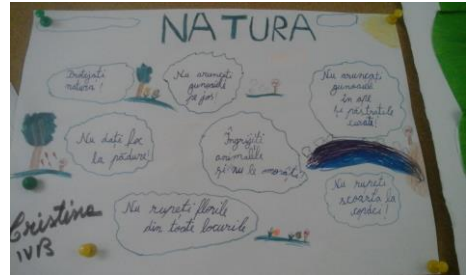 NATURA
Protejati
natura!
Nu aruncați
gunoaie
pe jos!
Nu aruncați
gunoaiele
în ape
și păstrațile
curate!
Nu dați foc
la pădure!
Îngrijiți
animalele
și nu le
Nu rupeți
scoarța la
copaci!
Nu rupeți florile
din toate locurile
Cristina
IV B